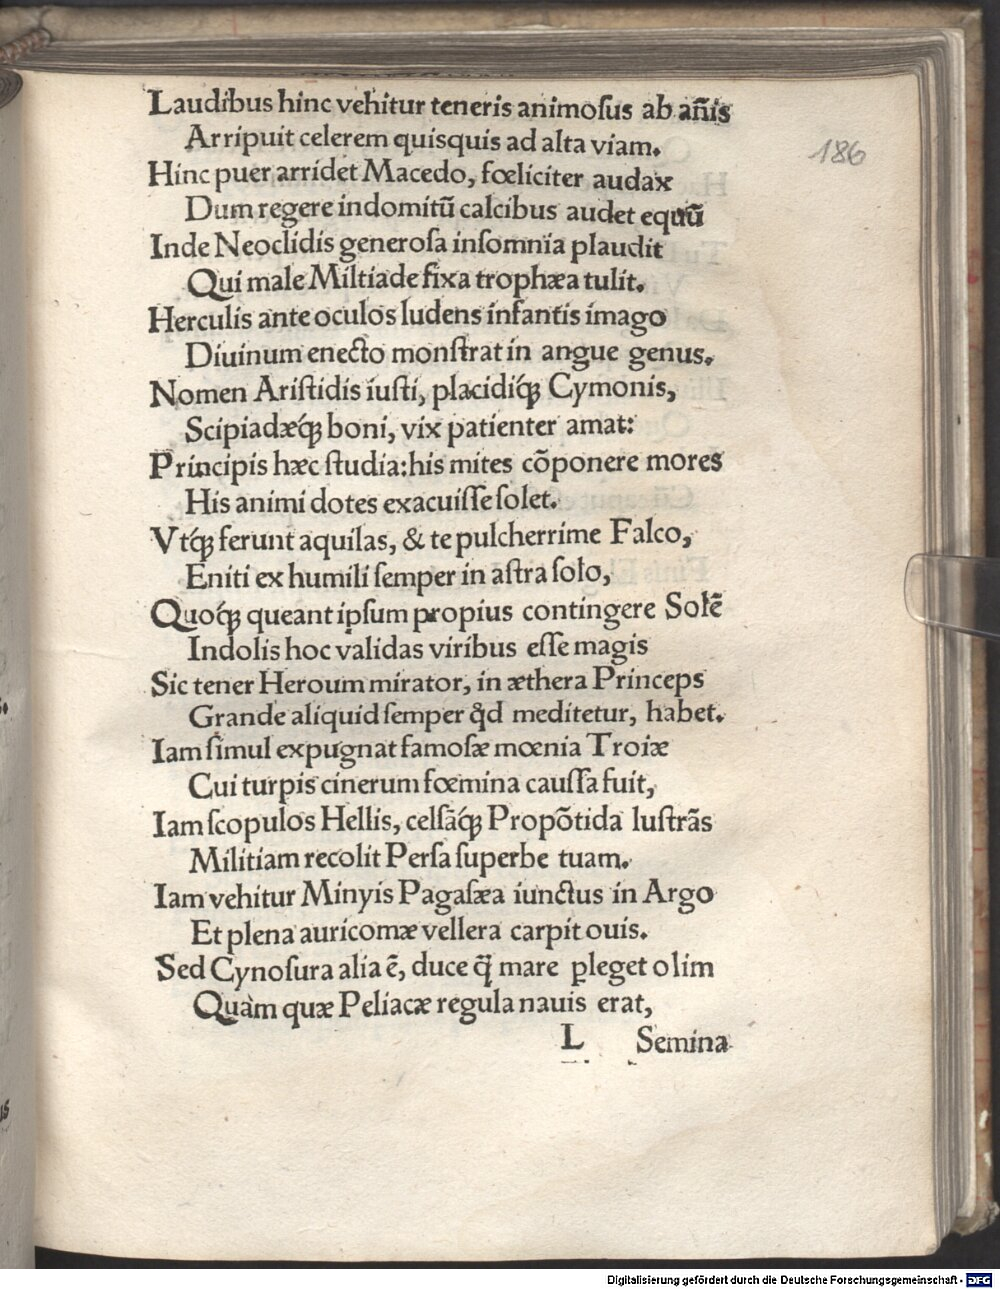 Laudibus hinc vehitur teneris animoſus ab añis
Arripuit celerem quisquis ad alta viam.
Hinc puer arridet Macedo, fœliciter audax
Dum regere indomitũ calcibus audet equũ
Inde Neoclidis generoſa inſomnia plaudit
Qui male Miltiade fixa trophæa tulit.
Herculis ante oculos ludens infantis imago
Diuinum enecto monſtrat in angue genus.
Nomen Ariſtidis iuſti, placidiq́ꝫ Cymonis,
Scipiadæq́ꝫ boni, vix patienter amat:
Principis hæc ſtudia:his mites cõponere mores
His animi dotes exacuiſſe ſolet.
Vtq́ꝫ ferunt aquilas, & te pulcherrime Falco,
Eniti ex humili ſemper in aſtra ſolo,
Quoq́ꝫ queant ipſum propius contingere Solẽ
Indolis hoc validas viribus eſſe magis
Sic tener Heroum mirator, in æthera Princeps
Grande aliquid ſemper qd̓ meditetur, habet.
Iam ſimul expugnat famoſæ mœnia Troiæ
Cui turpis cinerum fœmina cauſſa fuit,
Iam ſcopulos Hellis, celſãq́ꝫ Propõtida luſtrãs
Militiam recolit Perſa ſuperbe tuam.
Iam vehitur Minyis Pagaſæa iunctus in Argo
Et plena auricomæ vellera carpit ouis.
Sed Cynoſura alia ẽ, duce q̃ mare ꝑleget olim
Quàm quæ Peliacæ regula nauis erat,
L Semina
186
Digitalisierung gefördert durch die Deutsche Forschungsgemeinschaft - DFG